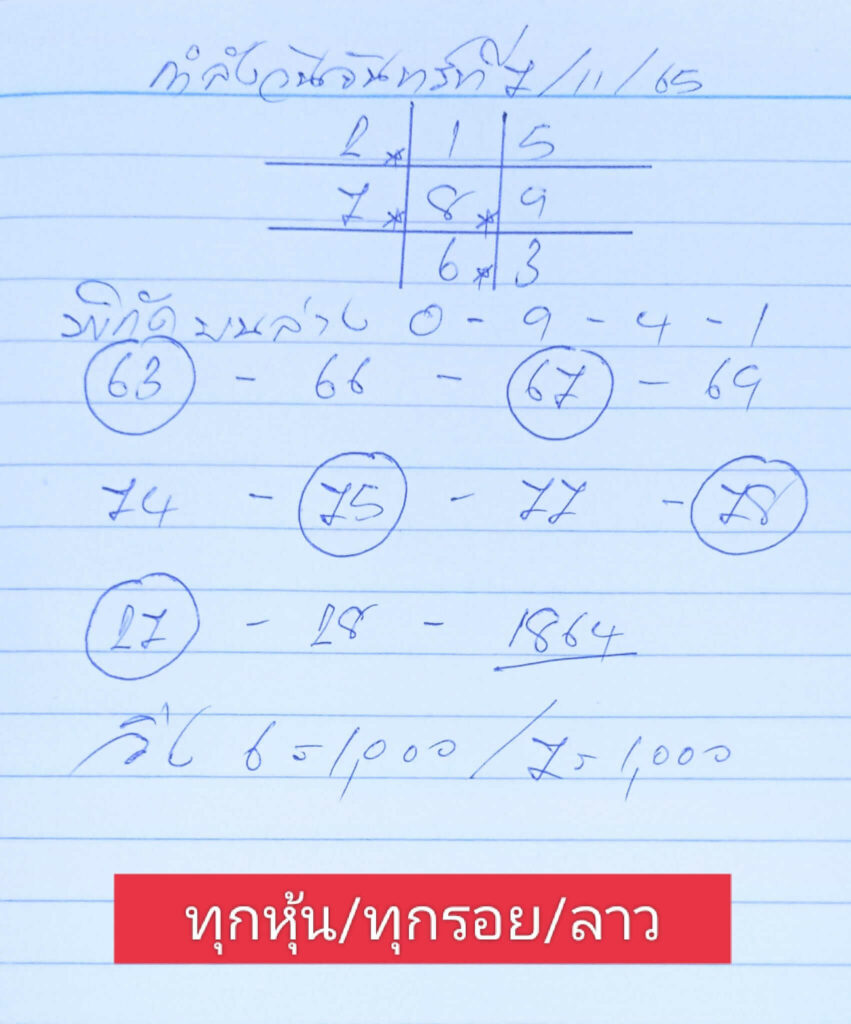 กำลังวันจันทร์ที่ 7/11/65
2 * 1 5
7 * 8 * 9
6 * 3
พิกัด บนล่าง 0 - 9 - 4 - 1
63 - 66 - 67 - 69
74 - 75 - 77 - 78
27 - 28 - 1864
วิ่ง 6 = 1,000 / 7 = 1,000
ทุกหุ้น/ทุกรอย/ลาว